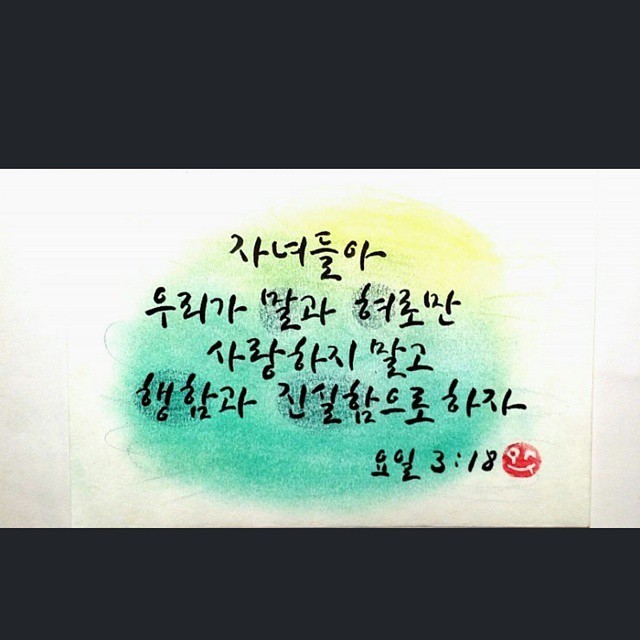 자녀들아
우리가 말과 혀로만
사랑하지 말고
행함과 진실함으로 하자
요일 3:18